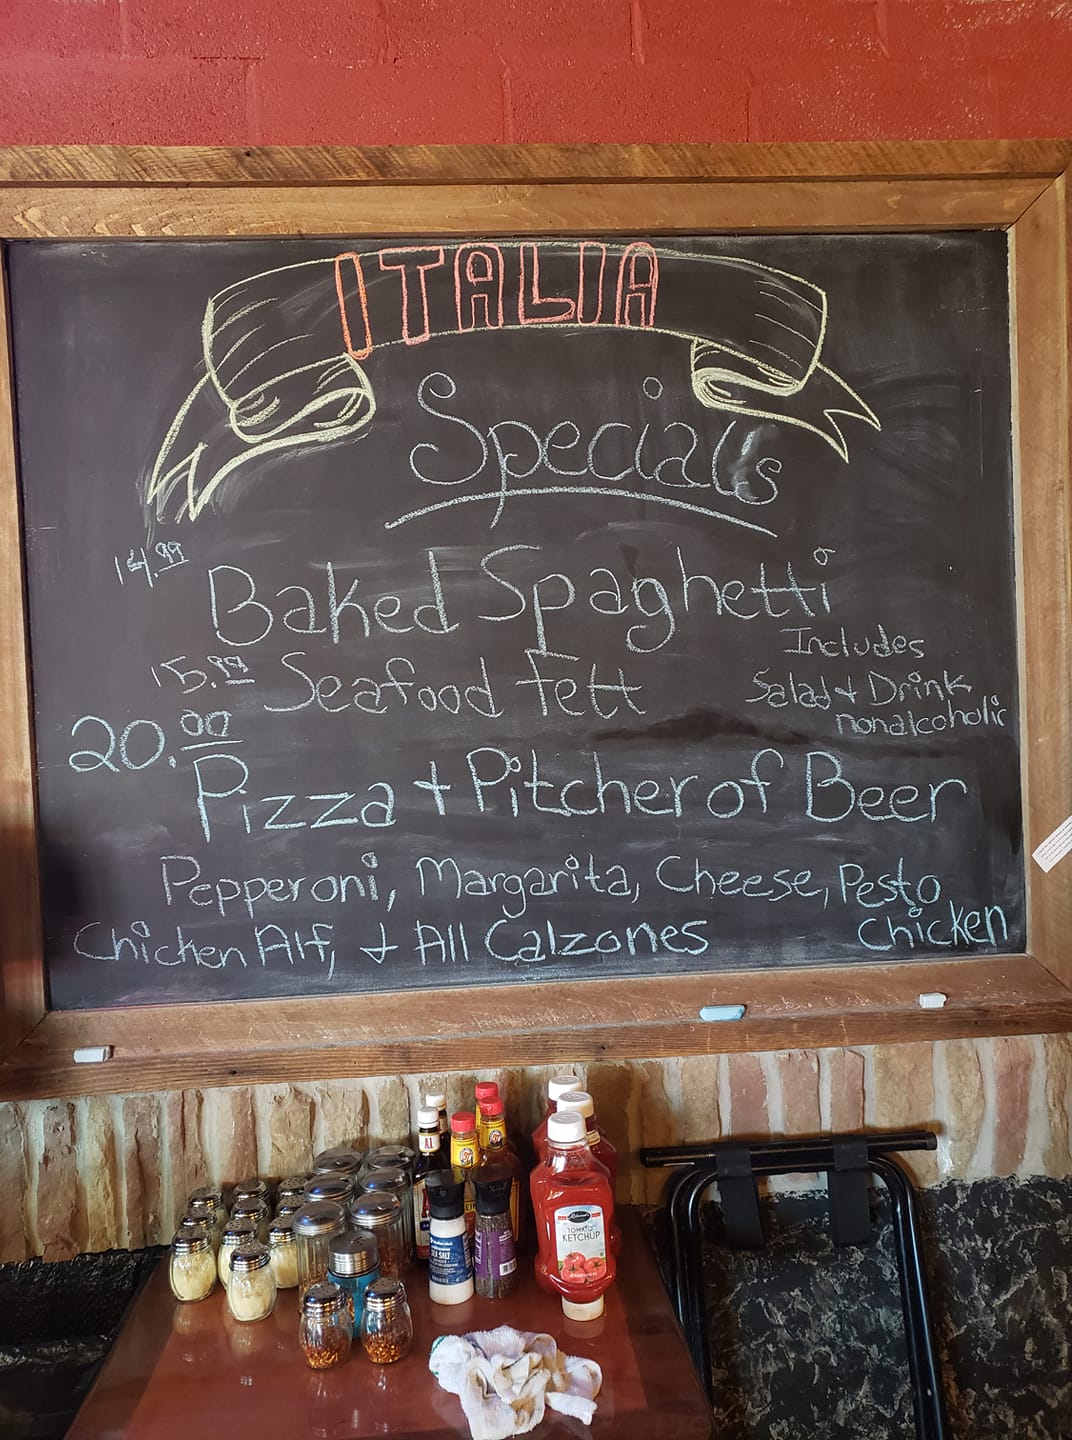 ITALIA
Specials
14.99 Baked Spaghetti
15.99 Seafood Fett
Includes
Salad + Drink
nonalcoholic
20.00
Pizza + Pitcher of Beer
Pepperoni, Margarita, Cheese, Pesto
Chicken
Chicken Alf, + All Calzones
A.1
SEA SALT
TOMATO
KETCHUP